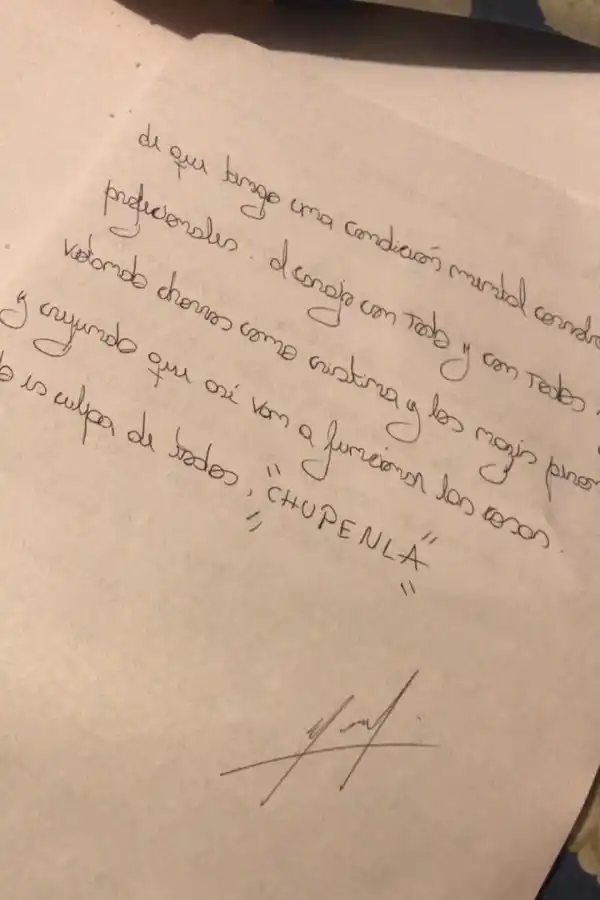 de que tengo una condición mental
profecionales. al carajo con Todo y con Todos.
votando chorros como cristina y los
y creyendo que asi van a funcionar las cosas.
es culpa de todos, "CHUPENLA"